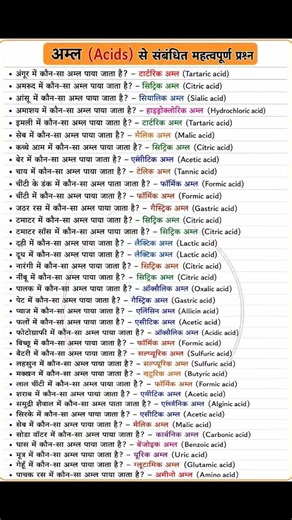 अम्ल (Acids) से संबंधित महत्वपूर्ण प्रश्न
• अंगूर में कौन-सा अम्ल पाया जाता है? – टार्टरिक अम्ल (Tartaric acid)
• अमरूद में कौन-सा अम्ल पाया जाता है? – सिट्रिक अम्ल (Citric acid)
• आंसू में कौन-सा अम्ल पाया जाता है? – सियालिक अम्ल (Sialic acid)
• अमाशय में कौन-सा अम्ल पाया जाता है? – हाइड्रोक्लोरिक अम्ल (Hydrochloric acid)
• इमली में कौन-सा अम्ल पाया जाता है? – टार्टरिक अम्ल (Tartaric acid)
• सेब में कौन-सा अम्ल पाया जाता है? – मैलिक अम्ल (Malic acid)
• कच्चे आम में कौन-सा अम्ल पाया जाता है? – सिट्रिक अम्ल (Citric acid)
• बेर में कौन-सा अम्ल पाया जाता है? – एसीटिक अम्ल (Acetic acid)
• चाय में कौन-सा अम्ल पाया जाता है? – टेनिक अम्ल (Tannic acid)
• चींटी के डंक में कौन-सा अम्ल पाया जाता है? – फॉर्मिक अम्ल (Formic acid)
• चींटी में कौन-सा अम्ल पाया जाता है? – फॉर्मिक अम्ल (Formic acid)
• जठर रस में कौन-सा अम्ल पाया जाता है? – गैस्ट्रिक अम्ल (Gastric acid)
• टमाटर में कौन-सा अम्ल पाया जाता है? – सिट्रिक अम्ल (Citric acid)
• टमाटर सॉस में कौन-सा अम्ल पाया जाता है? – सिट्रिक अम्ल (Citric acid)
• दही में कौन-सा अम्ल पाया जाता है? – लैक्टिक अम्ल (Lactic acid)
• दूध में कौन-सा अम्ल पाया जाता है? – लैक्टिक अम्ल (Lactic acid)
• नारंगी में कौन-सा अम्ल पाया जाता है? – सिट्रिक अम्ल (Citric acid)
• नींबू में कौन-सा अम्ल पाया जाता है? – सिट्रिक अम्ल (Citric acid)
• पालक में कौन-सा अम्ल पाया जाता है? – ऑक्सैलिक अम्ल (Oxalic acid)
• पेट में कौन-सा अम्ल पाया जाता है? – गैस्ट्रिक अम्ल (Gastric acid)
• प्याज में कौन-सा अम्ल पाया जाता है? – एलिसिन अम्ल (Allicin acid)
• फलों में कौन-सा अम्ल पाया जाता है? – एसीटिक अम्ल (Acetic acid)
• फोटोग्राफी में कौन-सा अम्ल पाया जाता है? – ऑक्सैलिक अम्ल (Acidic acid)
• बिच्छू में कौन-सा अम्ल पाया जाता है? – फॉर्मिक अम्ल (Formic acid)
• बैटरी में कौन-सा अम्ल पाया जाता है? – सल्फ्यूरिक अम्ल (Sulfuric acid)
• लहसुन में कौन-सा अम्ल पाया जाता है? – सल्फ्यूरिक अम्ल (Sulfuric acid)
• मक्खन में कौन-सा अम्ल पाया जाता है? – ब्यूटरिक अम्ल (Butyric acid)
• लाल चींटी में कौन-सा अम्ल पाया जाता है? – फॉर्मिक अम्ल (Formic acid)
• शराब में कौन-सा अम्ल पाया जाता है? – एसीटिक अम्ल (Acetic acid)
• समुद्री शैवाल में कौन-सा अम्ल पाया जाता है? – (Alginic acid)
• सिरके में कौन-सा अम्ल पाया जाता है? – एसीटिक अम्ल (Acetic acid)
• सेब में कौन-सा अम्ल पाया जाता है? – मैलिक अम्ल (Malic acid)
• सोडा वॉटर में कौन-सा अम्ल पाया जाता है? – कार्बोनिक अम्ल (Carbonic acid)
• घास में कौन-सा अम्ल पाया जाता है? – बेंजोइक अम्ल (Benzoic acid)
• मूत्र में कौन-सा अम्ल पाया जाता है? – यूरिक अम्ल (Uric acid)
• गेहूँ में कौन-सा अम्ल पाया जाता है? – ग्लूटामिक अम्ल (Glutamic acid)
• पाचक रस में कौन-सा अम्ल पाया जाता है? – अमीनो अम्ल (Amino acid)